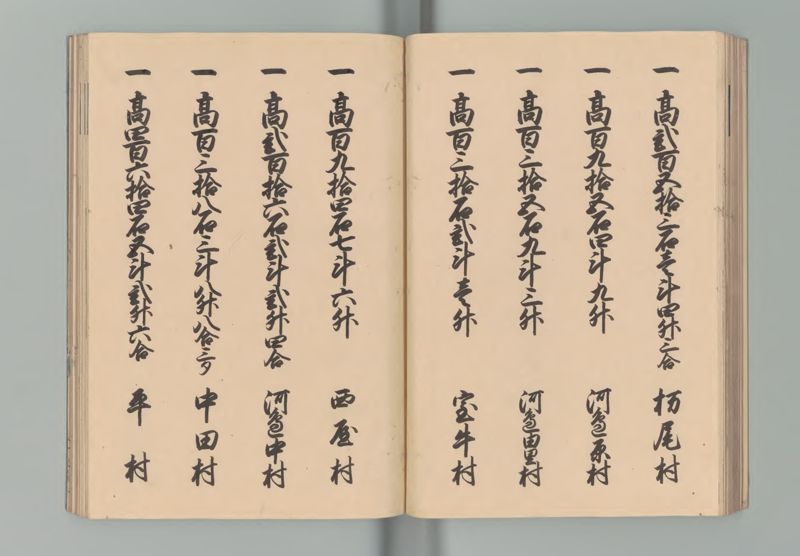 一 高弐百五拾三石壱斗四升三合 栃尾村
一 高百九拾五石四斗九升 河邊原村
一 高百三拾五石九斗三升 河邊田里村
一 高百三拾石弐斗壱升 室牛村
一 高百九拾四石七斗六升 西屋村
一 高弐百拾六石弐斗弐升四合 河邊中村
一 高百三拾八石三斗八升八合三夕 中田村
一 高四百六拾四石五斗弐升六合 平村